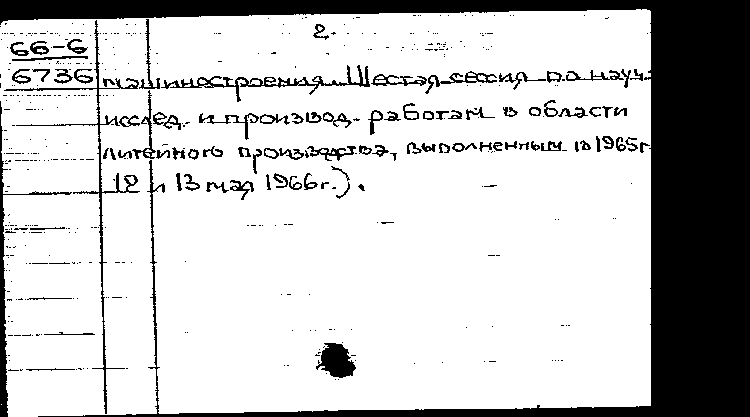 2.
66-6
6736 машиностроения. Шестая сессия по науч.-
исслед. и производ. работам в области
литейного производства, выполненным в 1965г
12 и 13 мая 1966г.).